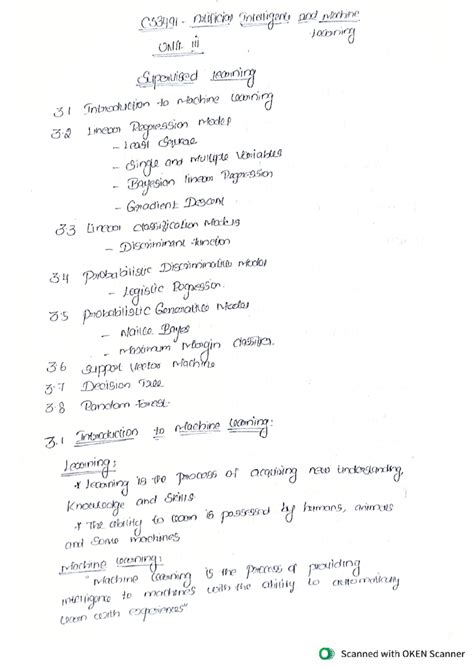 CS3491 - Artificial Intelligence and Machine
Learning
UNIT III
Supervised Learning
3.1 Introduction to Machine Learning
3.2 Linear Regression Models
- Least Square
- Single and Multiple Variables
- Bayesian linear Regression
- Gradient Descent
3.3 Linear Classification Models
- Discriminant function
3.4 Probabilistic Discriminative Model
- Logistic Regression
3.5 Probabilistic Generative Model
- Naive Bayes
- Maximum Margin Classifier
3.6 Support Vector Machine
3.7 Decision Tree
3.8 Random Forest.
3.1 Introduction to Machine Learning:
Learning:
* Learning is the process of acquiring new understanding,
Knowledge and Skills
* The ability to learn is possessed by humans, animals
and some machines
Machine Learning:
"Machine Learning is the process of providing
intelligence to machines with the ability to automatically
learn with experiences"
Scanned with OKEN Scanner